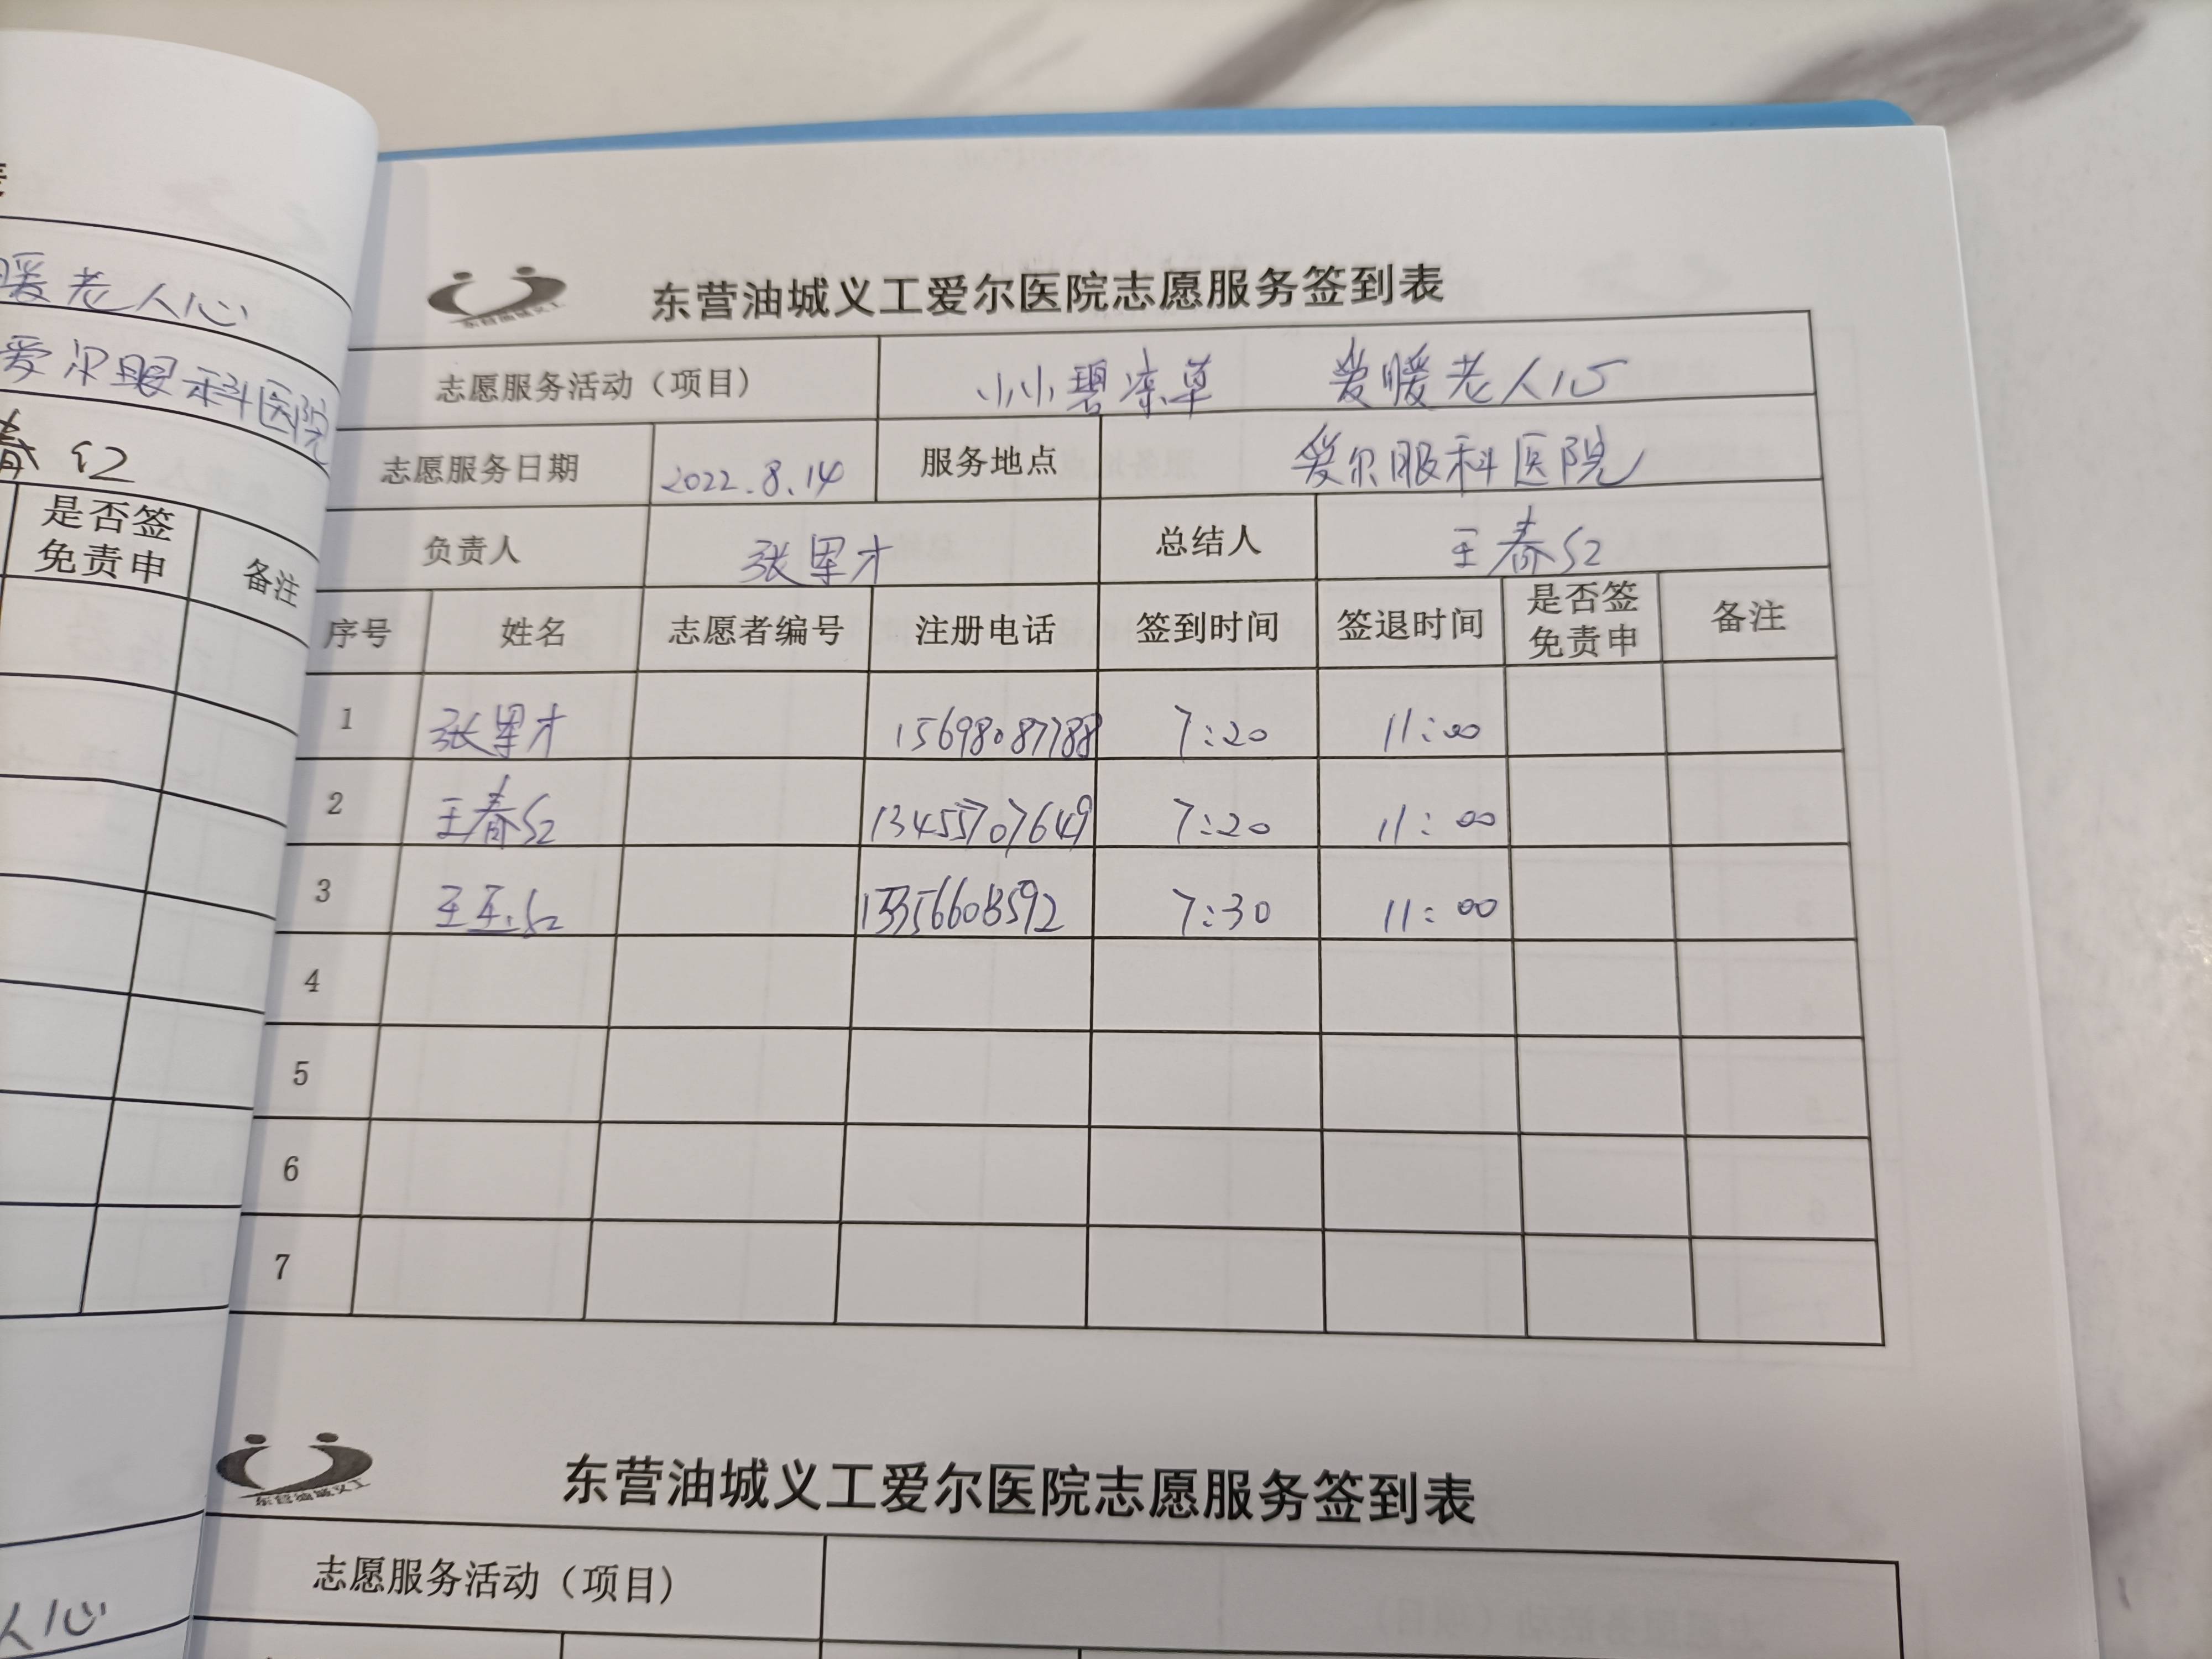 暖老人心
爱尔眼科医院
春红
是否签
免责申
备注
人心
东营油城义工
东营油城义工爱尔医院志愿服务签到表
志愿服务活动（项目） 小小碧凉草 爱暖老人心
志愿服务日期 2022.8.14 服务地点 爱尔眼科医院
负责人 张军才 总结人 王春红
序号 姓名 志愿者编号 注册电话 签到时间 签退时间 是否签免责申 备注
1 张军才 15698087788 7:20 11:00
2 王春红 13455707649 7:20 11:00
3 王玉红 7:30 11:00
4
5
6
7
东营油城义工
东营油城义工爱尔医院志愿服务签到表
志愿服务活动（项目）